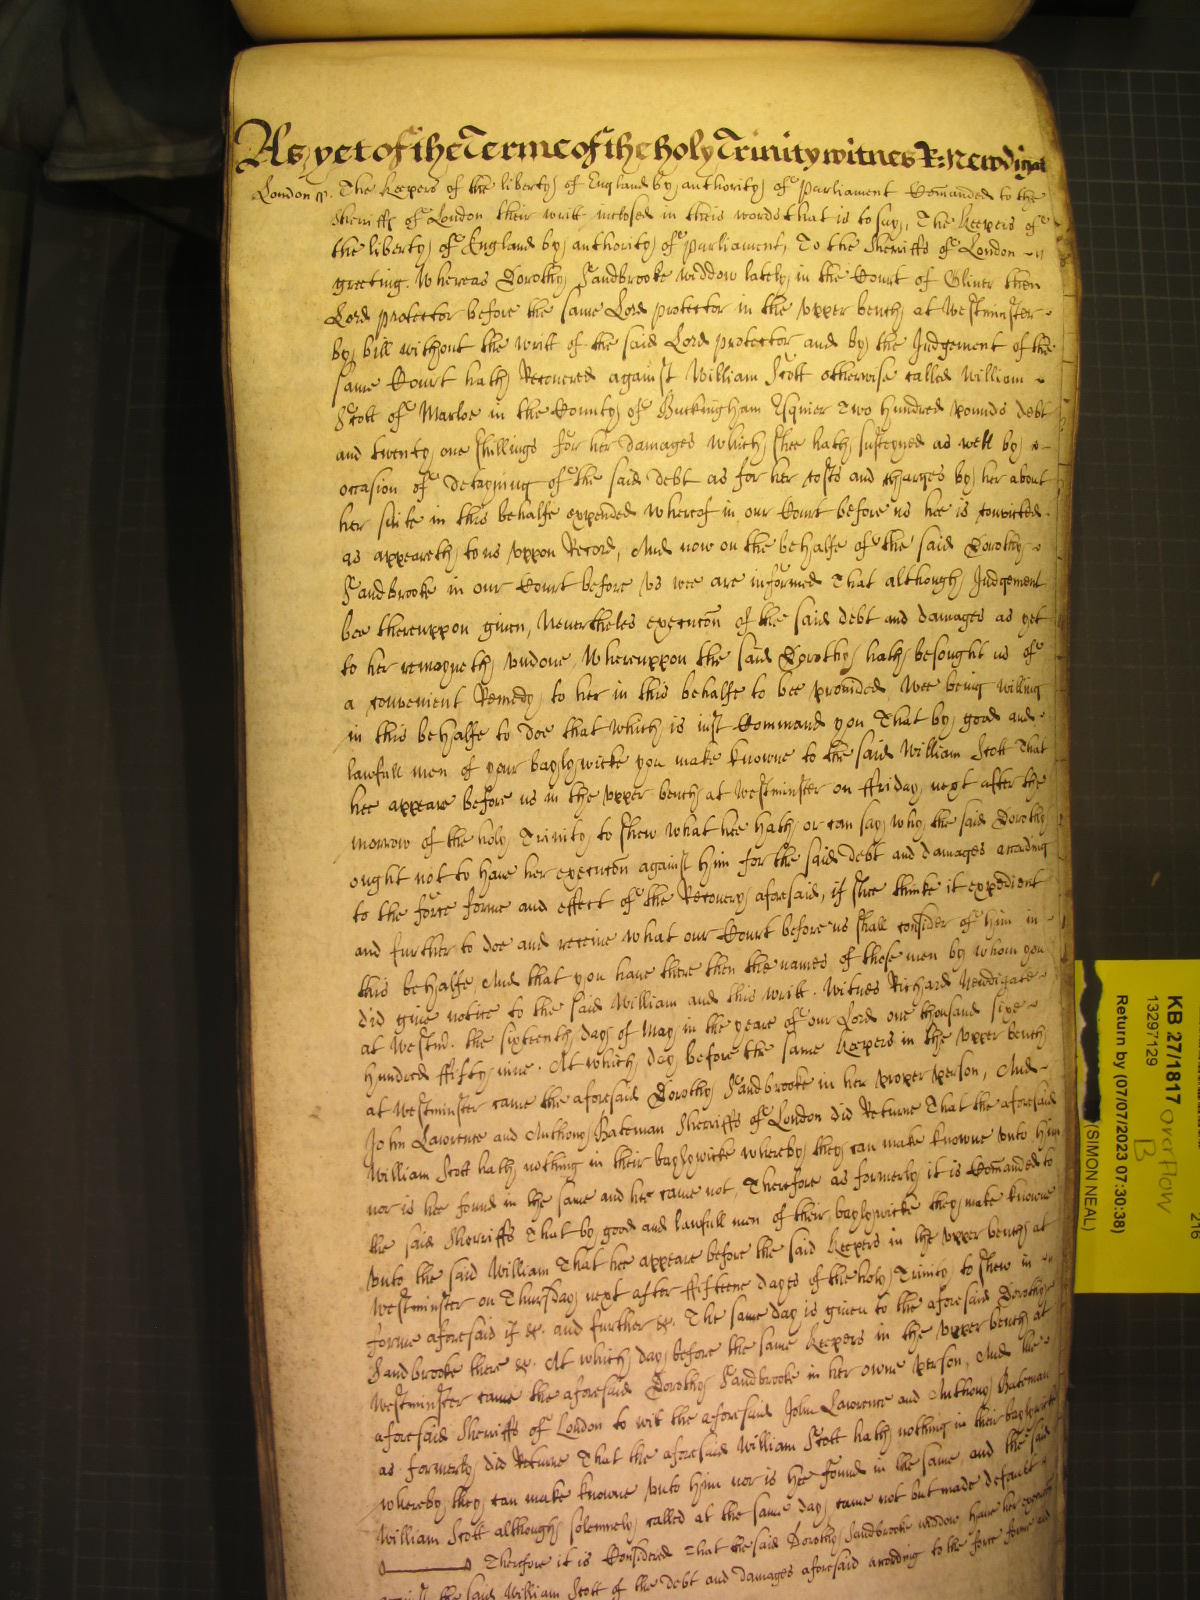 As yet of the Terme of the holy Trinity witnes R: Newdigat
London ss. The Keepers of the liberty of England by authority of Parliament Comanded to the
Sherriffs of London their writt inclosed in theis words that is to say, The Keepers of
the liberty of England by authority of parliament, To the Sherriffs of London
greeting. Whereas Dorothy Sandbrooke widdow lately in the Court of Oliver then
Lord protector before the same Lord protector in the vpper bench at Westminster
by bill without the writt of the said Lord protector and by the Judgement of the
same Court hath Recovered against William Scott otherwise called William
Scott of Marloe in the County of Buckingham Esquier Two hundred pounds debt
and twenty one shillings for her damages which shee hath susteyned as well by
occasion of detayning of the said debt as for her costs and charges by her about
her suite in this behalfe expended whereof in our Court before us hee is convicted
as appeareth to us vppon Record, And now on the behalfe of the said Dorothy
Sandbrooke in our Court before vs wee are informed That although Judgement
bee thereuppon given, Nevertheles execucon of the said debt and damages as yet
to her remayneth vndone, Whereuppon the said Dorothy hath besought us of
a convenient Remedy to her in this behalfe to bee provided Wee being willing
in this behalfe to doe that which is iust Command you That by good and
lawfull men of your baylywicke you make knowne to the said William Scott That
hee appeare before us in the vpper bench at Westminster on ffriday next after the
morrow of the holy Trinity to shew what hee hath or can say why the said Dorothy
ought not to have her execucon against him for the said debt and damages according
to the force forme and effect of the Recovery aforesaid, if shee thinke it expedient
and further to doe and receive what our Court before us shall consider of him in
this behalfe And that you have there then the names of those men by whom you
did give notice to the said William and this writt. Witnes Richard Newdigate
at Westmr. the sixteenth day of May in the yeare of our Lord one thousand sixe
hundred ffifty nine. At which day before the same Keepers in the vpper bench
at Westminster came the aforesaid Dorothy Sandbrooke in her proper person, And
John Lawrence and Anthony Bateman Sherriffs of London did Returne That the aforesaid
William Scott hath nothing in their baylywicke whereby they can make knowne vnto him
nor is hee found in the same and hee came not, Therefore as formerly it is Comanded to
the said Sherriffs That by good and lawfull men of their baylywicke they make knowne
vnto the said William That hee appeare before the said Keepers in the vpper bench at
Westminster on Thursday next after ffifteene dayes of the holy Trinity to shew in
forme aforesaid if &c. and further &c. The same day is given to the aforesaid Dorothy
Sandbrooke there &c. At which day before the same Keepers in the vpper bench at
Westminster came the aforesaid Dorothy Sandbrooke in her owne person, And the
aforesaid Sherriffs of London to wit the aforesaid John Lawrence and Anthony Bateman
as formerly did Returne That the aforesaid William Scott hath nothing in their baylywicke
whereby they can make knowne vnto him nor is hee found in the same, and the said
William Scott although solemnely called at the same day came not but made default
Therefore it is Considered That the said Dorothy Sandbrooke widdow have her execucon
the said William Scott of the debt and damages aforesaid according to the force forme and
KB 27/1817
13297129
Return by (07/07/2023 07:30:38)
(SIMON NEAL)
overflow
B
216